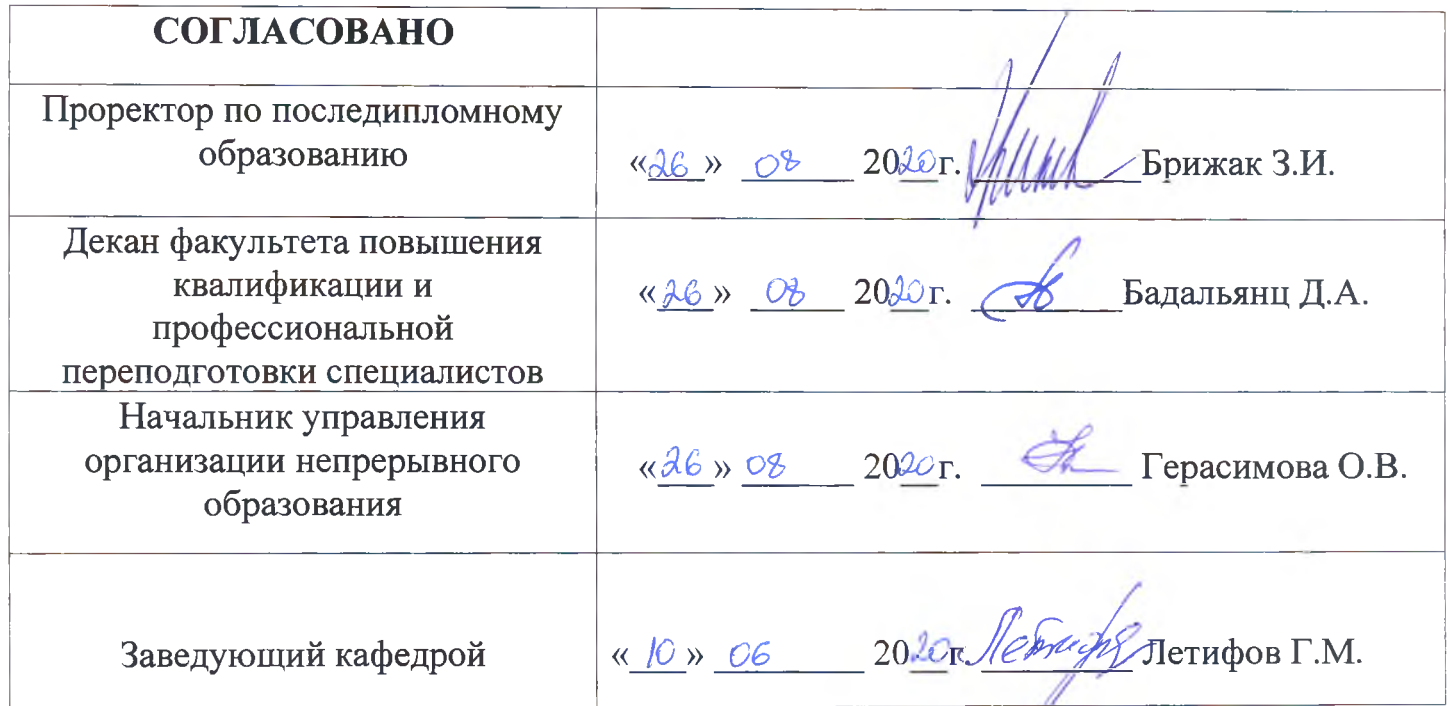 СОГЛАСОВАНО
Проректор по последипломному
образованию
«26» 08 2020г. Брижак З.И.
Декан факультета повышения
квалификации и
профессиональной
переподготовки специалистов
«26» 08 2020г. Бадальянц Д.А.
Начальник управления
организации непрерывного
образования
«26» 08 2020г. Герасимова О.В.
Заведующий кафедрой
«10» 06 2020г. Летифов Г.М.